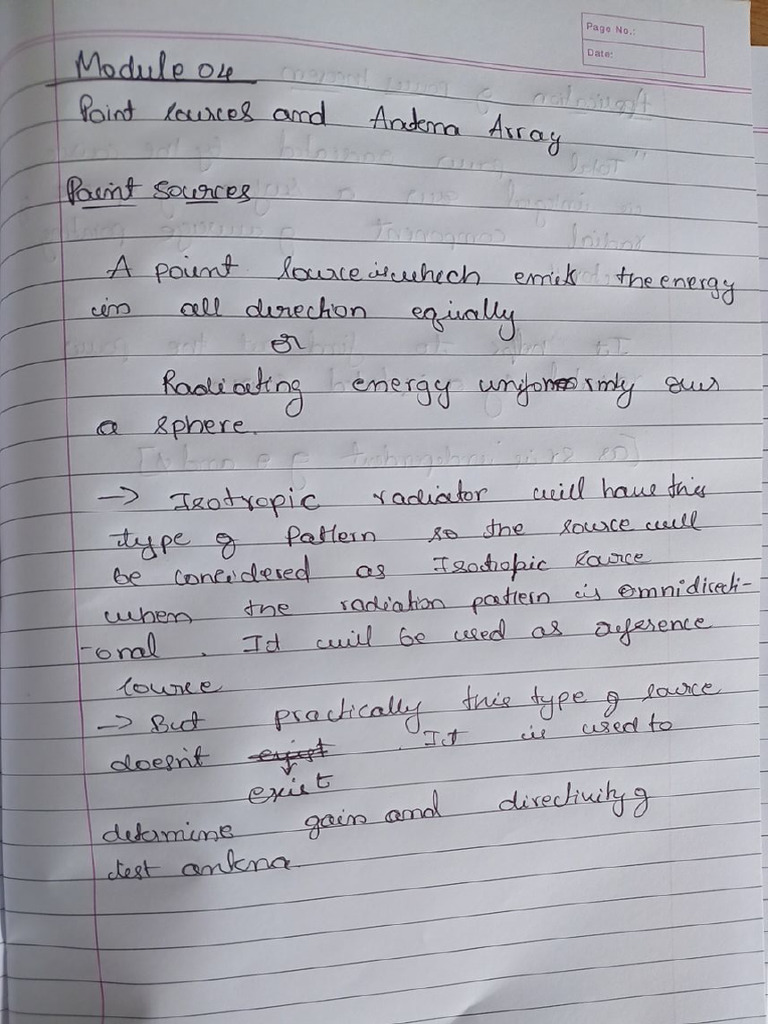 Page No.:
Date:
Module 04
Point sources and Antenna Array
Point sources
A point source is which emits the energy
in all direction equally
or
Radiating energy uniformly over
a sphere.
-> Isotropic radiator will have this
type of Pattern so the source will
be considered as Isotropic source
when the radiation pattern is omnidirecti-
-onal. It will be used as reference
source
-> But practically this type of source
doesn't exist. It is used to
exist
determine gain and directivity of
test antenna